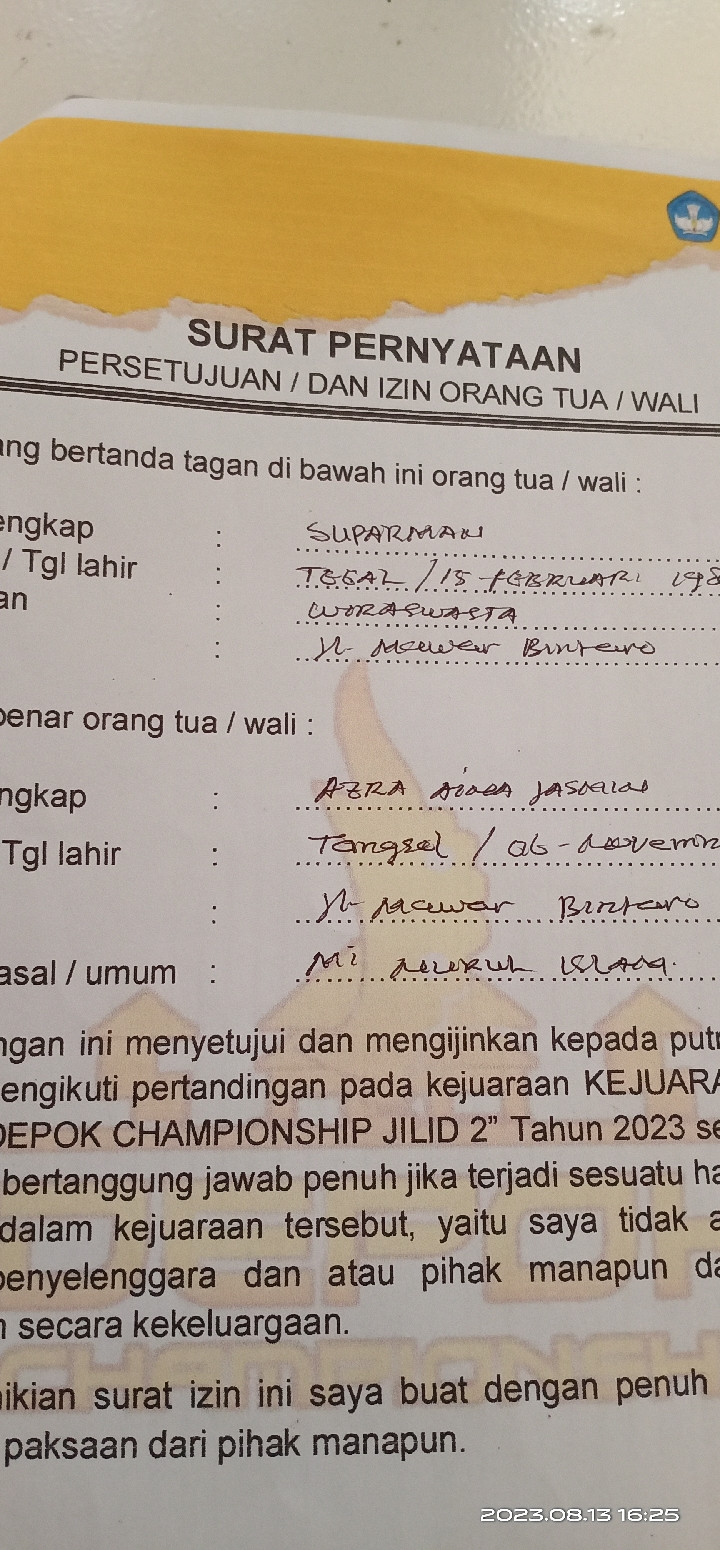 SURAT PERNYATAAN
PERSETUJUAN / DAN IZIN ORANG TUA / WALI
ang bertanda tagan di bawah ini orang tua / wali :
engkap : SUPARMAN
/ Tgl lahir : TEGAL / 15 FEBRUARI 198
an : WIRASWASTA
: Jl Mawar Bintaro
benar orang tua / wali :
ngkap : AZRA
Tgl lahir : Tangsel / 06 - Novem
: Jl Mawar Bintaro
asal / umum : Mi Nurul Islam.
ngan ini menyetujui dan mengijinkan kepada putr
engikuti pertandingan pada kejuaraan KEJUARA
DEPOK CHAMPIONSHIP JILID 2” Tahun 2023 se
bertanggung jawab penuh jika terjadi sesuatu ha
dalam kejuaraan tersebut, yaitu saya tidak a
penyelenggara dan atau pihak manapun da
n secara kekeluargaan.
ikian surat izin ini saya buat dengan penuh
paksaan dari pihak manapun.
2023.08.13 16:25